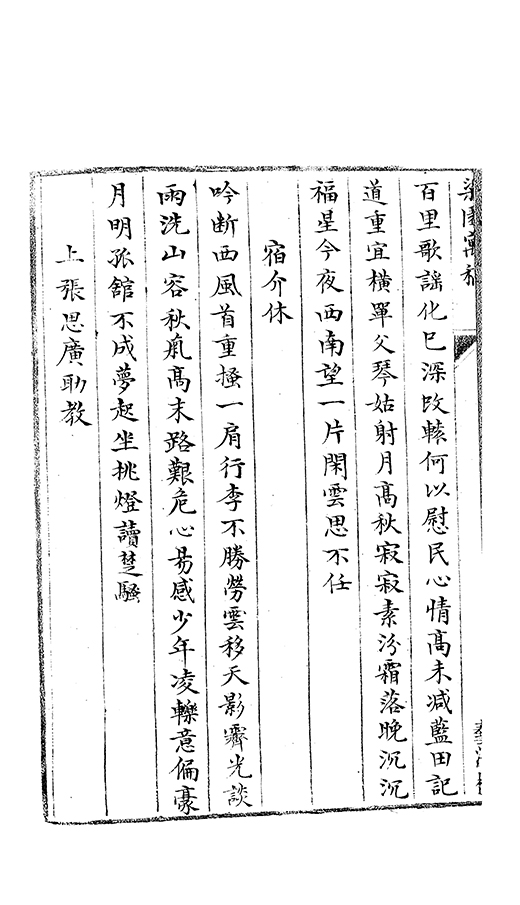 百里歌謡化已深改轅何以慰民心情高未减藍田記
道重宜橫單父琴姑射月髙秋寂寂素汾霜落晚沉沉
福星今夜西南望一片閑雲思不任
宿介休
吟断西風首重搔一肩行李不勝勞雲移天影霽光談
雨洗山容秋氣髙末路艱危心易感少年凌轢意偏豪
月明孤舘不成夢起坐挑燈讀楚騷
上張思廣助教